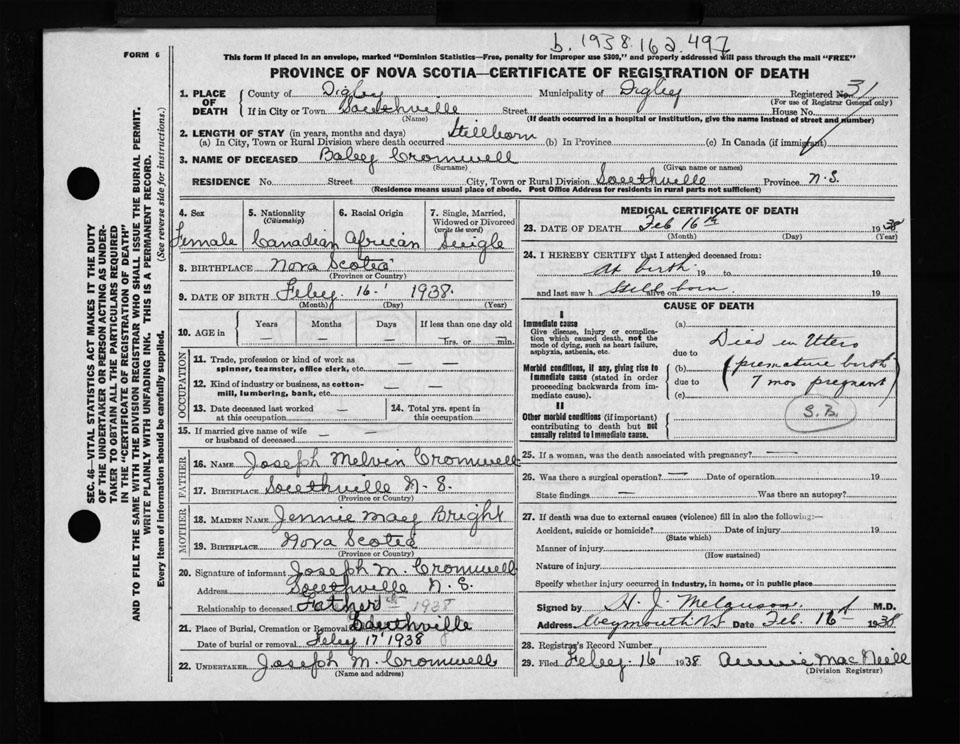 b. 1938.162.497
FORM 6
This form if placed in an envelope, marked "Dominion Statistics—Free, penalty for improper use $300," and properly addressed will pass through the mail "FREE"
PROVINCE OF NOVA SCOTIA—CERTIFICATE OF REGISTRATION OF DEATH
1. PLACE OF DEATH
County of Digby Municipality of Digby Registered No. 31
(For use of Registrar General only)
If in City or Town Southville Street House No.
(Name) (If death occurred in a hospital or institution, give the name instead of street and number)
2. LENGTH OF STAY (in years, months and days) Stillborn
(a) In City, Town or Rural Division where death occurred (b) In Province (c) In Canada (if immigrant)
3. NAME OF DECEASED Baley Cromwell
(Surname) (Given name or names)
RESIDENCE No. Street City, Town or Rural Division Southville Province N.S.
(Residence means usual place of abode. Post Office Address for residents in rural parts not sufficient)
4. Sex
Female
5. Nationality
(Citizenship)
Canadian
6. Racial Origin
African
7. Single, Married, Widowed or Divorced
(write the word)
Single
8. BIRTHPLACE Nova Scotia
(Province or Country)
9. DATE OF BIRTH Feby. 16 1938.
(Month) (Day) (Year)
10. AGE in Years Months Days If less than one day old
— — — —hrs. or —min.
OCCUPATION
11. Trade, profession or kind of work as spinner, teamster, office clerk, etc. — —
12. Kind of industry or business, as cotton-mill, lumbering, bank, etc. — —
13. Date deceased last worked at this occupation —
14. Total yrs. spent in this occupation —
15. If married give name of wife or husband of deceased — —
FATHER
16. NAME Joseph Melvin Cromwell
17. BIRTHPLACE Southville N.S.
(Province or Country)
MOTHER
18. MAIDEN NAME Jennie May Bright
19. BIRTHPLACE Nova Scotia
(Province or Country)
20. Signature of informant Joseph M. Cromwell
Address Southville N.S.
Relationship to deceased Father 1938
21. Place of Burial, Cremation or Removal Southville
Date of burial or removal Feby 17 1938
22. UNDERTAKER Joseph M. Cromwell
(Name and address)
MEDICAL CERTIFICATE OF DEATH
23. DATE OF DEATH Feb 16th 1938
(Month) (Day) (Year)
24. I HEREBY CERTIFY that I attended deceased from:
At birth 19 to 19
and last saw h Stillborn alive on 19
CAUSE OF DEATH
I
Immediate cause
Give disease, injury or complication which caused death, not the mode of dying, such as heart failure, asphyxia, asthenia, etc.
Morbid conditions, if any, giving rise to immediate cause (stated in order proceeding backwards from immediate cause).
II
Other morbid conditions (if important) contributing to death but not causally related to immediate cause.
(a) Died in Utero
due to
(b) (premature birth
due to 7 mos pregnant)
(c)
S.B.
25. If a woman, was the death associated with pregnancy? —
26. Was there a surgical operation? — Date of operation 19
State findings — Was there an autopsy?
27. If death was due to external causes (violence) fill in also the following:—
Accident, suicide or homicide? Date of injury 19
(State which)
Manner of injury
(How sustained)
Nature of injury
Specify whether injury occurred in industry, in home, or in public place
Signed by H. J. M.D.
Address Weymouth NS Date Feb. 16 1938
28. Registrar's Record Number
29. Filed Feby 16 1938 Annie MacNeill
(Division Registrar)
SEC. 46—VITAL STATISTICS ACT MAKES IT THE DUTY
OF THE UNDERTAKER OR PERSON ACTING AS UNDER-
TAKER TO OBTAIN ALL THE PARTICULARS REQUIRED
IN THE "CERTIFICATE OF REGISTRATION OF DEATH"
AND TO FILE THE SAME WITH THE DIVISION REGISTRAR WHO SHALL ISSUE THE BURIAL PERMIT.
WRITE PLAINLY WITH UNFADING INK. THIS IS A PERMANENT RECORD.
Every item of information should be carefully supplied. (See reverse side for instructions.)